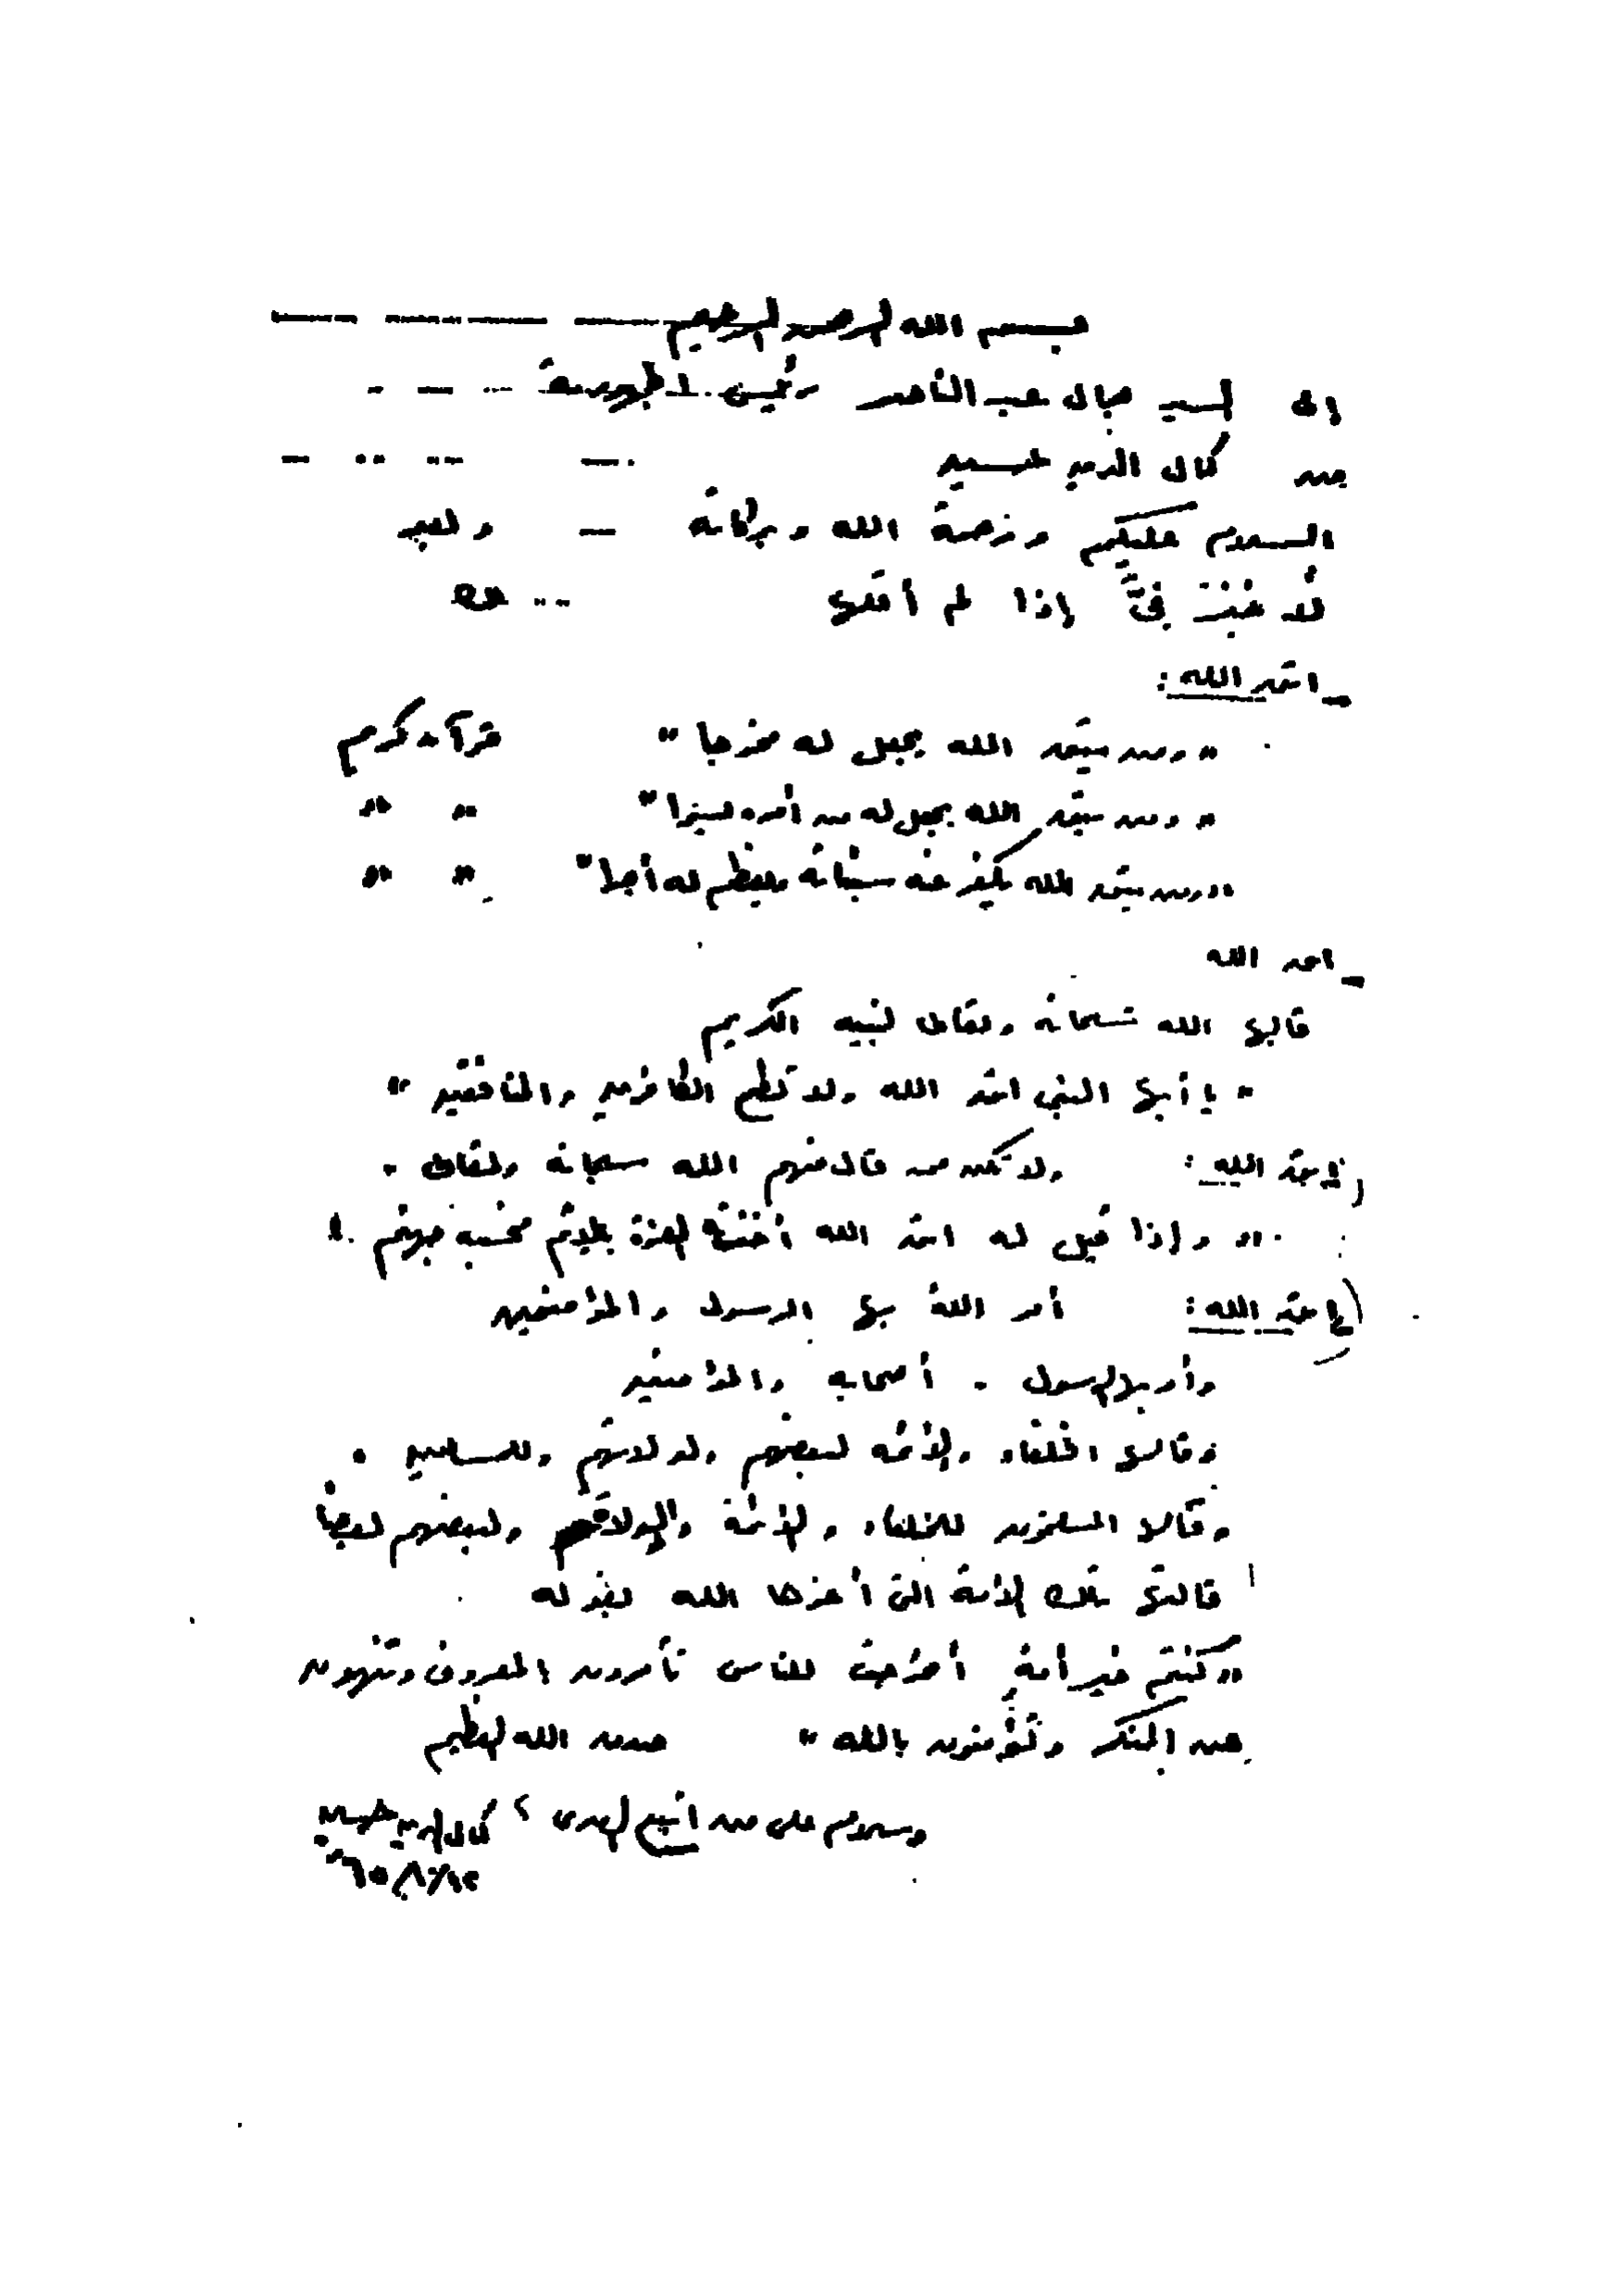 بسم الله الرحمن الرحيم
إلى السيد جمال عبد الناصر رئيس الجمهورية
من كمال الدين حسين
السلام عليكم ورحمة الله وبركاته — وبعد
لا خير فيَّ إذا لم أقلها
_ اتق الله :
" ومن يتق الله يجعل له مخرجا " قرآن كريم
" ومن يتق الله يجعل له من أمره يسرا " " "
" ومن يتق الله يكفر عنه سيئاته ويعظم له أجرا " " "
_ اتق الله
قالها الله سبحانه وتعالى لنبيه الكريم
" يا أيها النبي اتق الله ولا تطع الكافرين والمنافقين "
اتق الله : ولا تكن ممن قال فيهم الله سبحانه وتعالى .
" وإذا قيل له اتق الله أخذته العزة بالإثم فحسبه جهنم " .
اتق الله : أمر الله بها الرسول والمؤمنين
وأمر بها الرسول . أصحابه والمؤمنين
وقالها الخلفاء والأئمة لبعضهم ولولاتهم وللمسلمين .
وقالها المسلمون للخلفاء والأئمة والولاة ولبعضهم بعضاً
قالتها تلك الأمة التى أعزها الله بقوله
" كنتم خير أمةٍ أخرجت للناس تأمرون بالمعروف وتنهون
عن المنكر وتؤمنون بالله " صدق الله العظيم
وسلام على من اتبع الهدى ، كمال الدين حسين
٦٥/٨/١٢